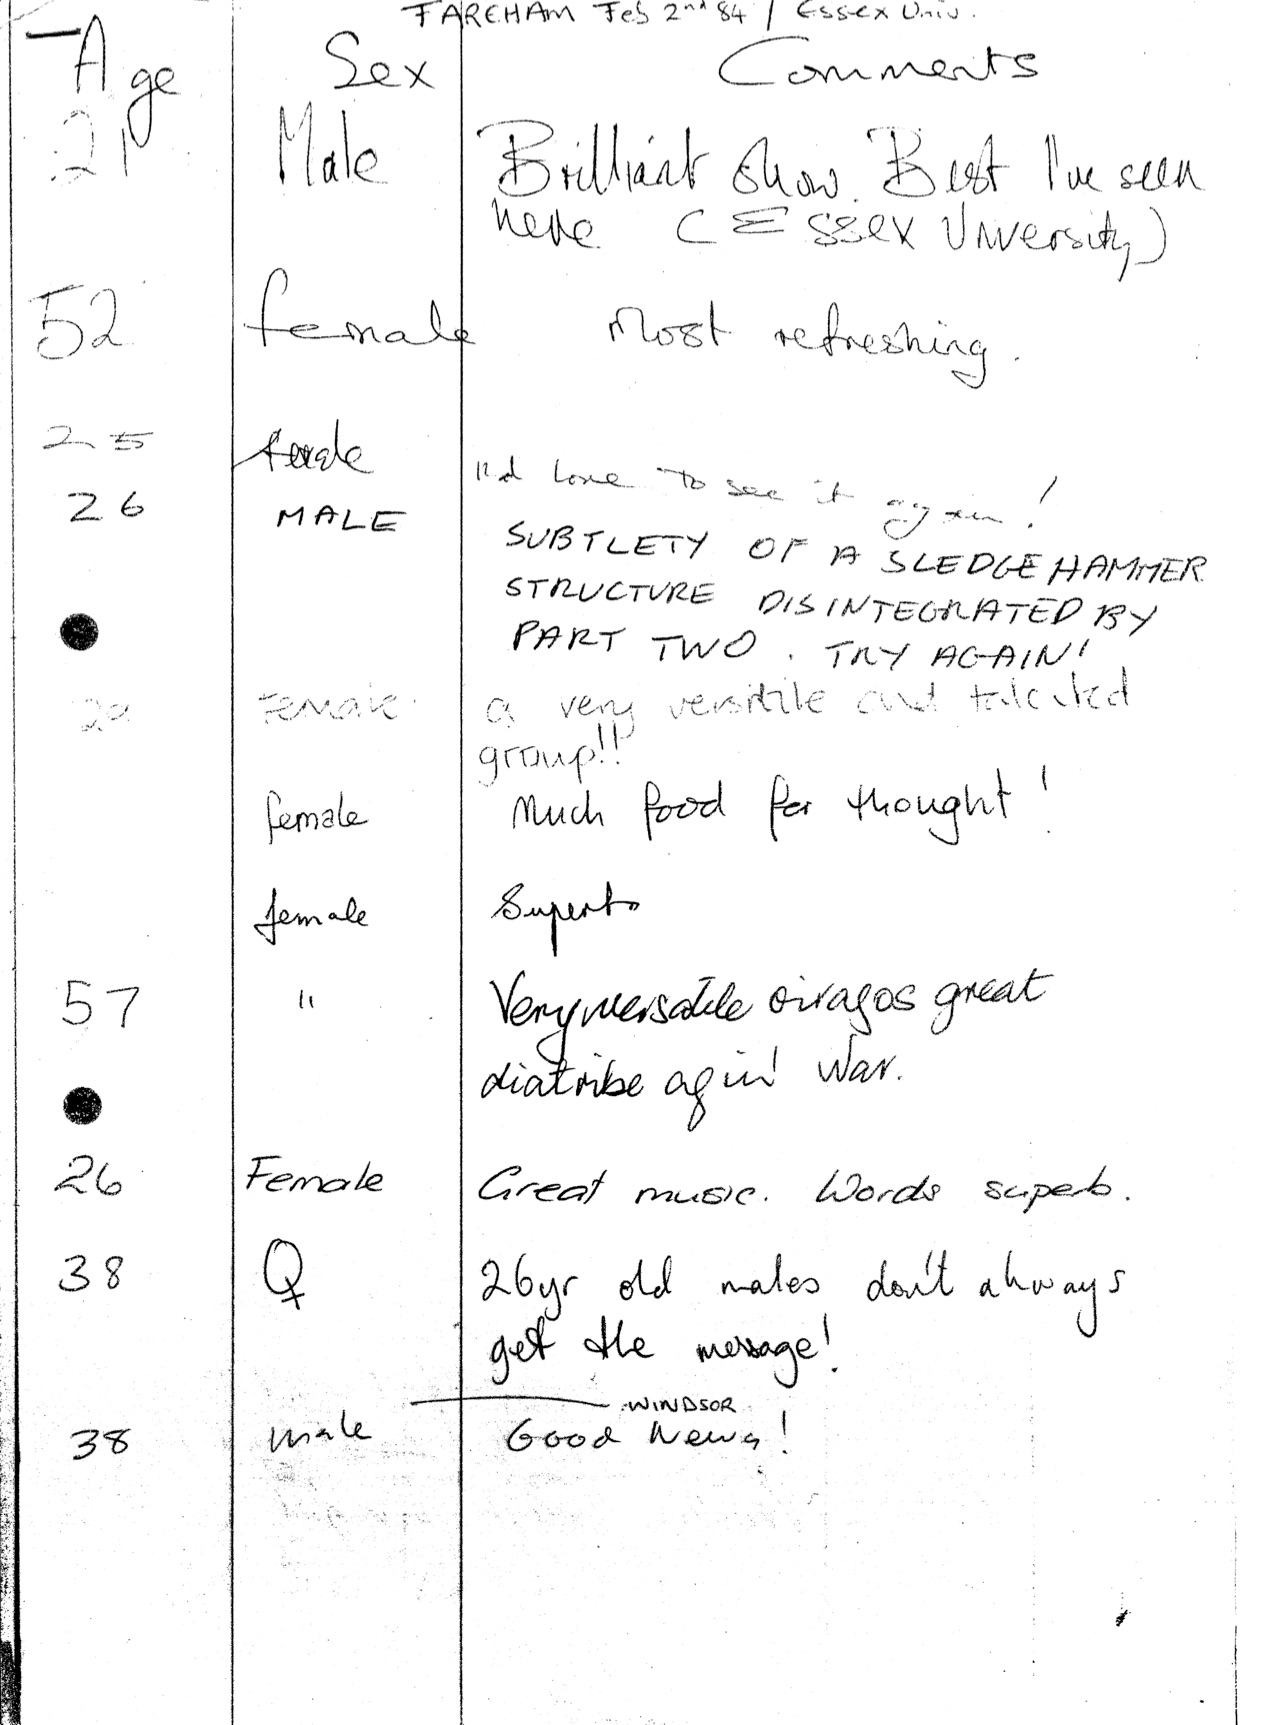 FAREHAM Feb 2nd 84 / Essex Univ.
Age Sex Comments
21 Male Brilliant show. Best I've seen
here (Essex University)
52 female Most refreshing.
25 female I'd love to see it again!
26 MALE SUBTLETY OF A SLEDGEHAMMER
STRUCTURE DISINTEGRATED BY
PART TWO. TRY AGAIN!
Female a very versitile and talented
group!!
female Much food for thought!
female Superb
57 " Very versatile great
diatribe agin' War.
26 Female Great music. Words superb.
38 ♀ 26yr old males don't always
get the message!
WINDSOR
38 male Good News!